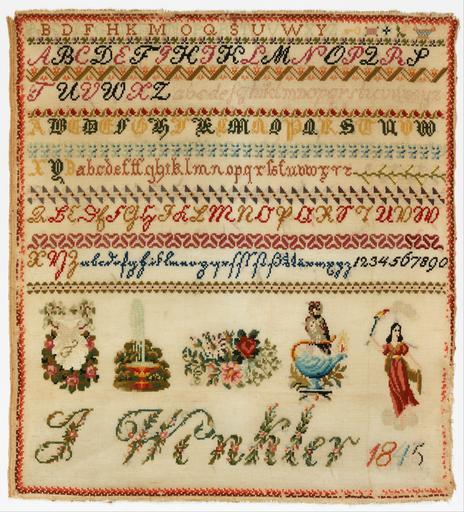 B D F H K M O Q S U W
A B C D E F G H I K L M N O P Q R S
T U V W X Z a b c d e f g h i k l m n o p q r s t u v w x y z
A B C D E F G H I K L M N O P Q R S T U V W
X Y Z a b c d e f ff g h i k l m n o p q r s s t u v w x y z
A B C D E F G H I K L M N O P Q R S T U V W
X Y Z 1 2 3 4 5 6 7 8 9 0
J Winkler 1845